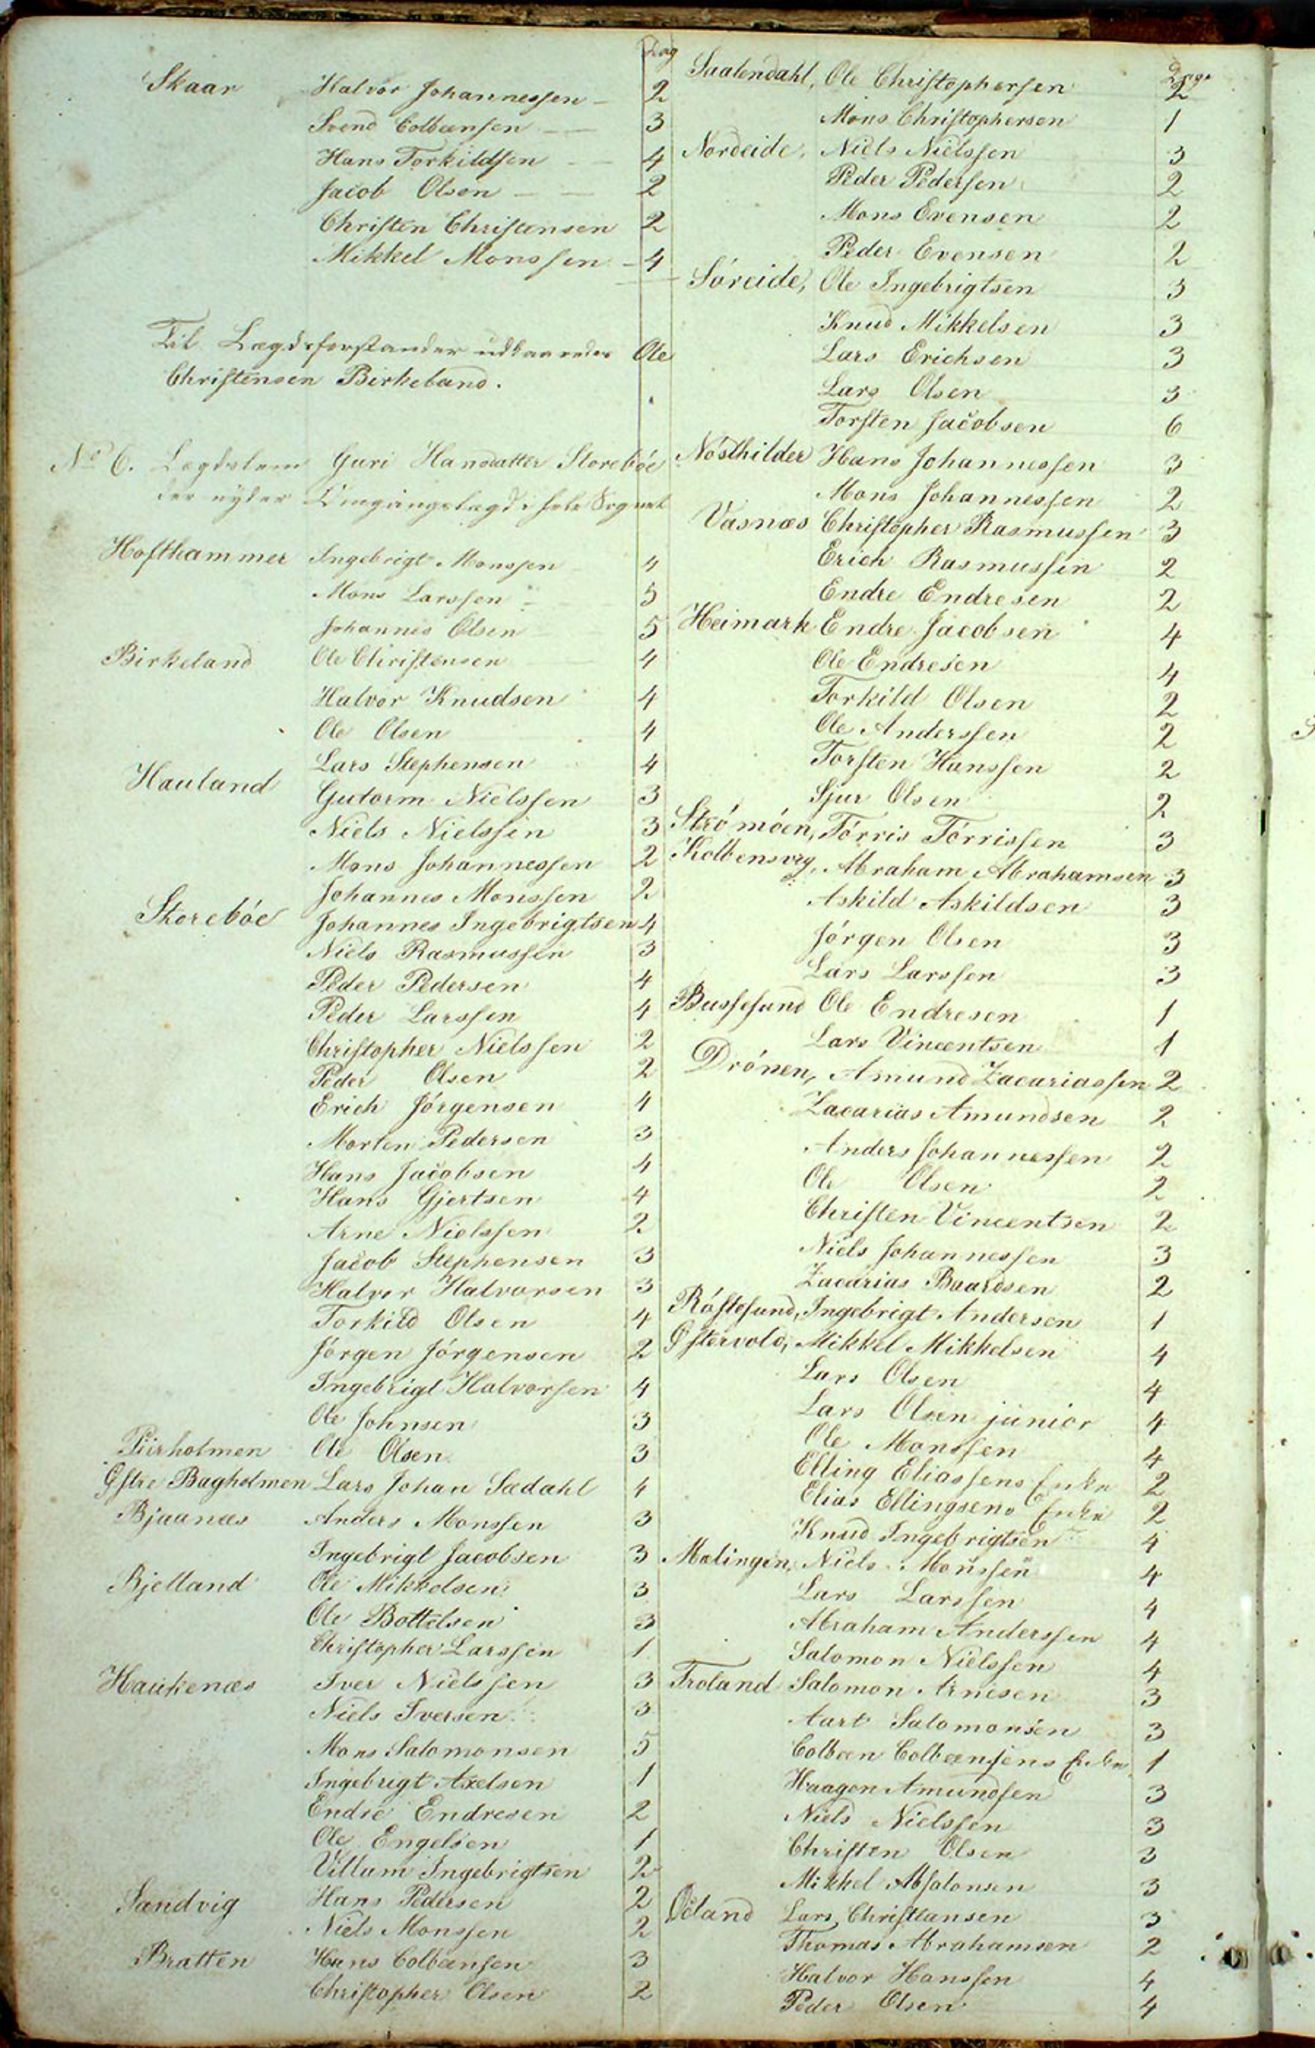 Dag
Skaar Halvor Johannessen 2
Svend Colbeensen 3
Hans Torkildsen 4
Jacob Olsen 2
Christen Christensen 2
Mikkel Monssen 4
Til Lægdsforstander udkaaredes Ole
Christensen Birkeland.
No 6. Lægdslem Guri Hansdatter Storeböe
der nyder Omgangslægd i hele Sognet
Hofthammer Ingebrigt Monssen 4
Mons Larssen 5
Johannes Olsen 5
Birkeland Ole Christensen 4
Halvor Knudsen 4
Ole Olsen 4
Lars Stephensen 4
Hauland Gutorm Nielssen 3
Niels Nielssen 3
Mons Johannessen 2
Johannes Monssen 2
Storebóe Johannes Ingebrigtsen 4
Niels Rasmussen 3
Peder Pedersen 4
Peder Larssen 4
Christopher Nielssen 2
Peder Olsen 2
Erich Jörgensen 4
Morten Pedersen 3
Hans Jacobsen 4
Hans Gjertsen 4
Arne Nielssen 2
Jacob Stephensen 3
Halvor Halvorsen 3
Torkild Olsen 4
Jörgen Jörgensen 2
Ingebrigt Halvorsen 4
Ole Johnsen 3
Piirholmen Ole Olsen 3
Östre Bagholmen Lars Johan Sædahl 4
Bjaanæs Anders Monssen 3
Ingebrigt Jacobsen 3
Bjelland Ole Mikkelsen 3
Ole Bottelsen 3
Christopher Larssen 1
Haukenæs Iver Nielssen 3
Niels Iversen 3
Mons Salomonsen 5
Ingebrigt Axelsen 1
Endre Endresen 2
Ole Engelsen 1
Villum Ingebrigtsen 2
Sandvig Hans Pedersen 2
Niels Monssen 2
Bratten Hans Colbeensen 3
Christopher Olsen 2
Dage
Saatendahl, Ole Christophersen 2
Mons Christophersen 1
Nordeide, Niels Nielssen 3
Peder Pedersen 2
Mons Evensen 2
Peder Evensen 2
Söreide, Ole Ingebrigtsen 3
Knud Mikkelsen 3
Lars Erichsen 3
Lars Olsen 3
Torsten Jacobsen 6
Nósthilder Hans Johannessen 3
Mons Johannessen 2
Vasnæs Christopher Rasmussen 3
Erich Rasmussen 2
Endre Endresen 2
Heimark Endre Jacobsen 4
Ole Endresen 4
Torkild Olsen 2
Ole Anderssen 2
Torsten Hanssen 2
Sjur Olsen 2
Strömöen, Törris Törrissen 3
Kolbensvig, Abraham Abrahamsen 3
Askild Askildsen 3
Jörgen Olsen 3
Lars Larssen 3
Bussesund Ole Endresen 1
Lars Vincentsen 1
Drönen, Amund Zacariassen 2
Zacarias Amundsen 2
Anders Johannessen 2
Ole Olsen 2
Christen Vincentsen 2
Niels Johannessen 3
Zacarias Baardsen 2
Röstesund, Ingebrigt Andersen 1
Östervold, Mikkel Mikkelsen 4
Lars Olsen 4
Lars Olsen junior 4
Ole Monssen 4
Elling Eliassens Enke 2
Elias Ellingsens Enke 2
Knud Ingebrigtsen 4
Mælingen, Niels Monssen 4
Lars Larssen 4
Abraham Anderssen 4
Salomon Nielssen 4
Troland Salomon Arnesen 3
Aart Salomonsen 3
Colbeen Colbeensens Enke 1
Haagen Amundsen 3
Niels Nielssen 3
Christen Olsen 3
Mikkel Absalonsen 3
Öeland Lars Christiansen 3
Thomas Abrahamsen 2
Halvor Hanssen 4
Peder Olsen 4